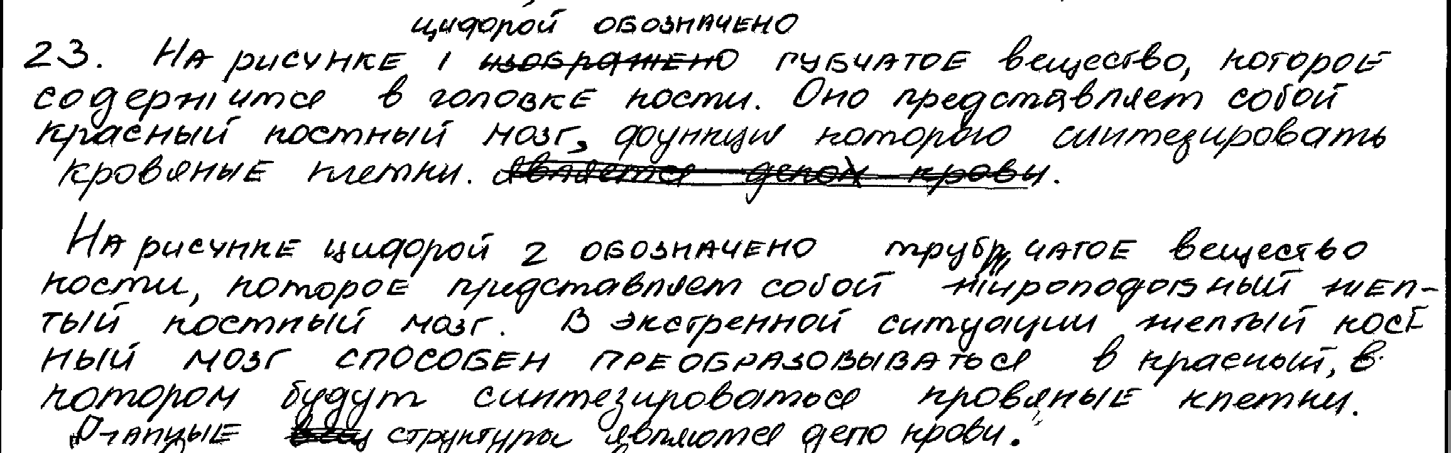 цифрой обозначено
23. На рисунке 1 изображено губчатое вещество, которое
содержится в головке кости. Оно представляет собой
красный костный мозг, функция которого синтезировать
кровяные клетки. является депом крови.
На рисунке цифрой 2 обозначено трубчатое вещество
кости, которое представляет собой жироподобный жел-
тый костный мозг. В экстренной ситуации желтый кост
ный мозг способен преобразовываться в красный, в
котором будут синтезироваться кровяные клетки.
структуры являются депо крови.